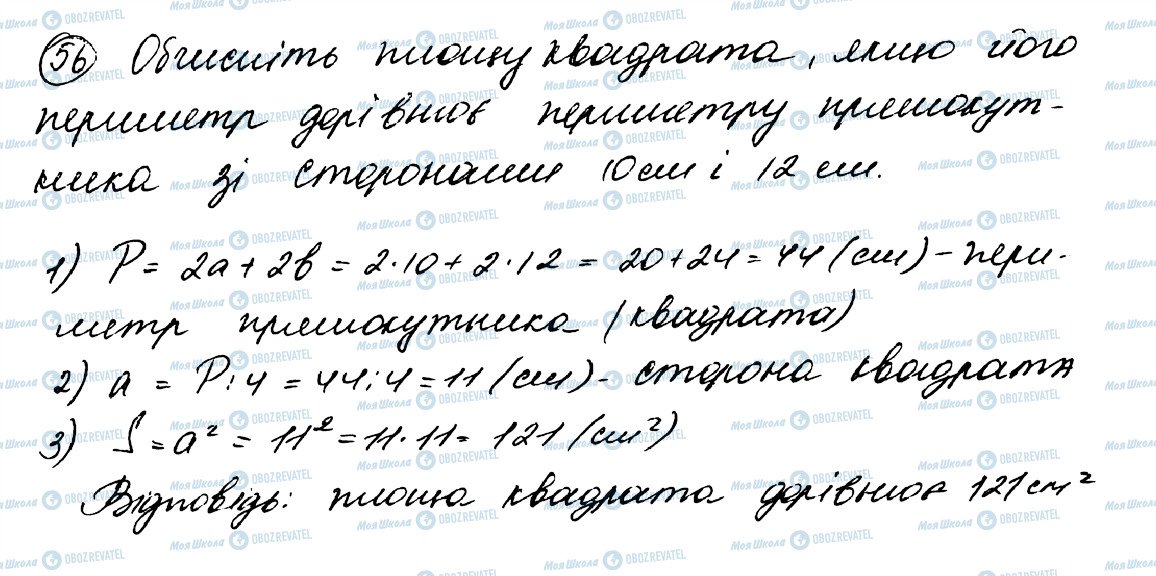 56 Обчисліть площу квадрата, якщо його
периметр дорівнює периметру прямокут-
ника зі сторонами 10 см і 12 см.
1) P = 2a + 2b = 2·10 + 2·12 = 20 + 24 = 44 (см) - пери-
метр прямокутника (квадрата)
2) a = P : 4 = 44 : 4 = 11 (см) - сторона квадрата
3) S = a² = 11² = 11·11 = 121 (см²)
Відповідь: площа квадрата дорівнює 121 см²